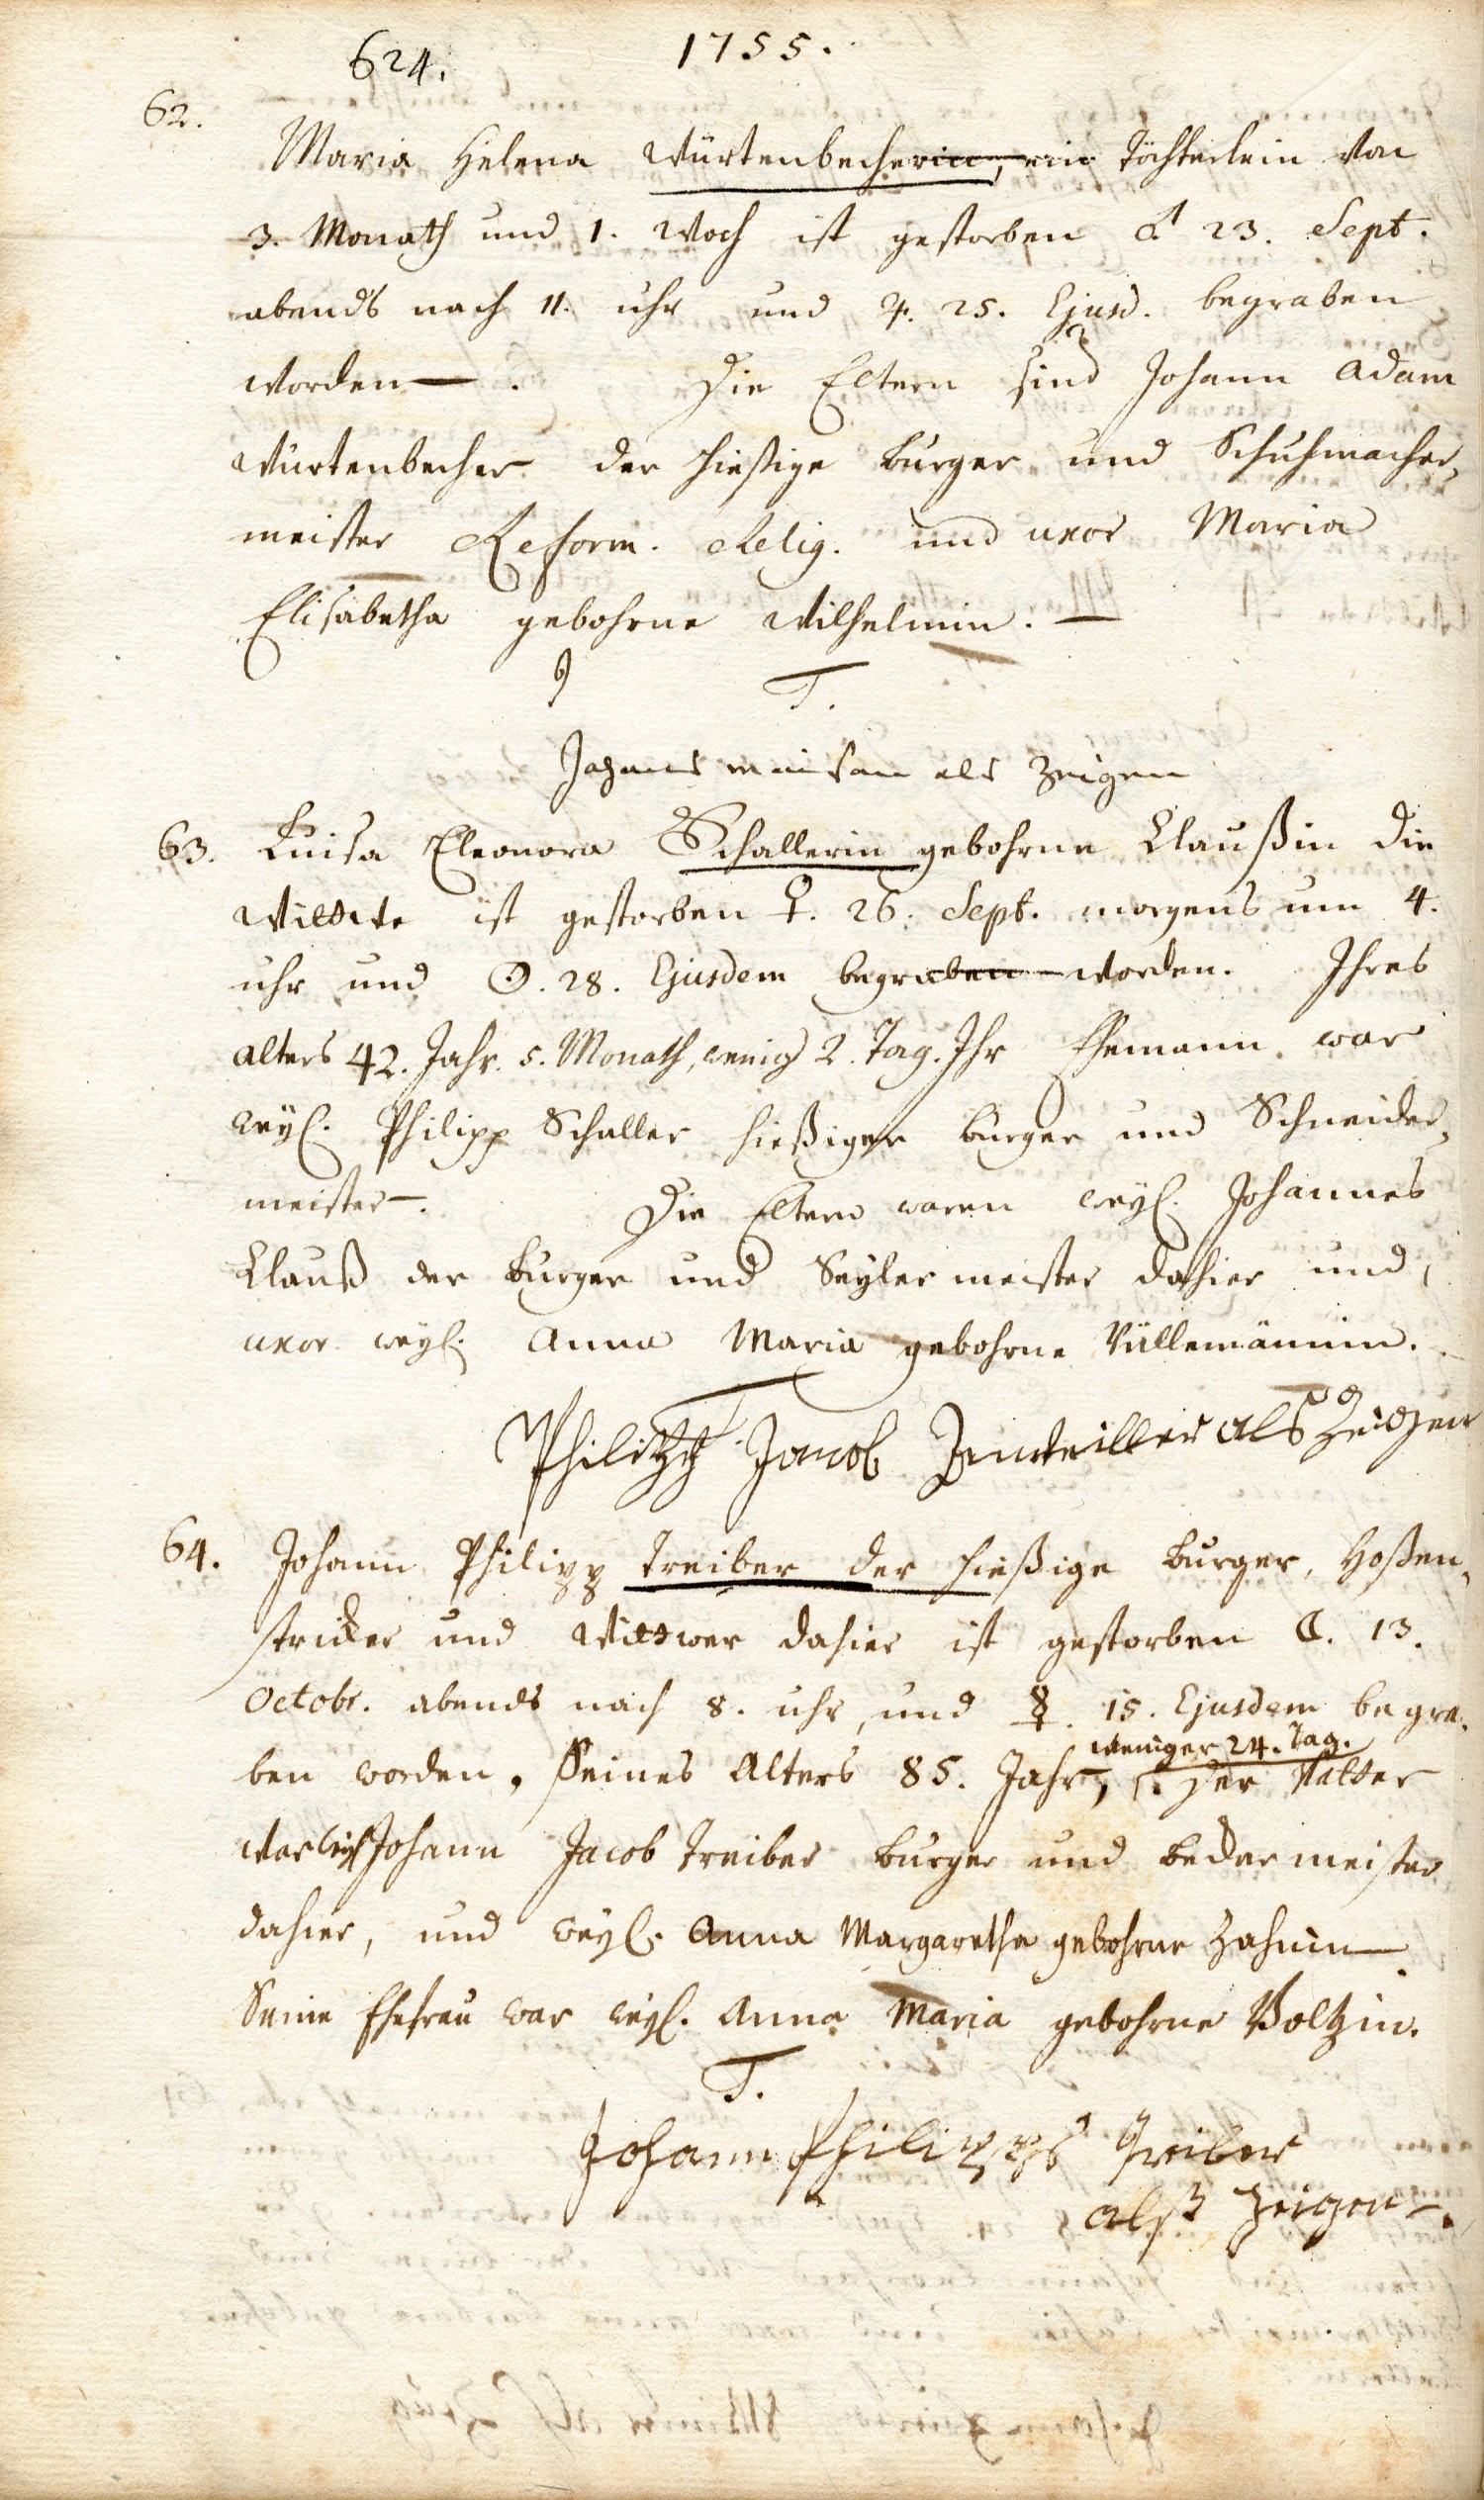 624. 1755.
62.
Maria Helena Würtenbecherin, ein Töchterlein von
3. Monath und 1. Woch ist gestorben ♂ 23. Sept.
abends nach 11. uhr und ♃. 25. Ejusd. begraben
worden. Die Eltern sind Johann Adam
Würtenbecher der hießige burger und Schuhmacher,
meister Reform. Relig. und uxor Maria
Elisabetha gebohrne Wilhelmin.
T.
als Zeigen
63. Luisa Eleonora Schallerin gebohrne Claußin die
Wittwe ist gestorben ♀. 26. Sept. morgens um 4.
uhr und ☉. 28. Ejusdem begraben worden. Ihres
alters 42. Jahr. 5. Monath, wenig 2. Tag. Ihr Ehemann war
weyl. Philipp Schaller hießiger burger und Schneider,
meister. Die Eltern waren weyl. Johannes
Clauß der burger und Seyler meister dahier und,
uxor weyl. Anna Maria gebohrne Vüllemännin.
T.
Philipp Jacob als Zeugen
64. Johann Philipp Treiber der hießige burger, Hoßen,
stricker und Wittwer dahier ist gestorben ☾. 13.
Octobr. abends nach 8. uhr, und ☿. 15. Ejusdem begra,
ben worden, Seines Alters 85. Jahr, weniger 24. Tag. Der Vatter
war weyl Johann Jacob Treiber burger und becker meister
dahier, und weyl. Anna Margaretha gebohrne Zahnin
Seine Ehefrau war weyl. Anna Maria gebohrne Voltzin.
T.
Johann Philipps Treiber
alß Zeigen.